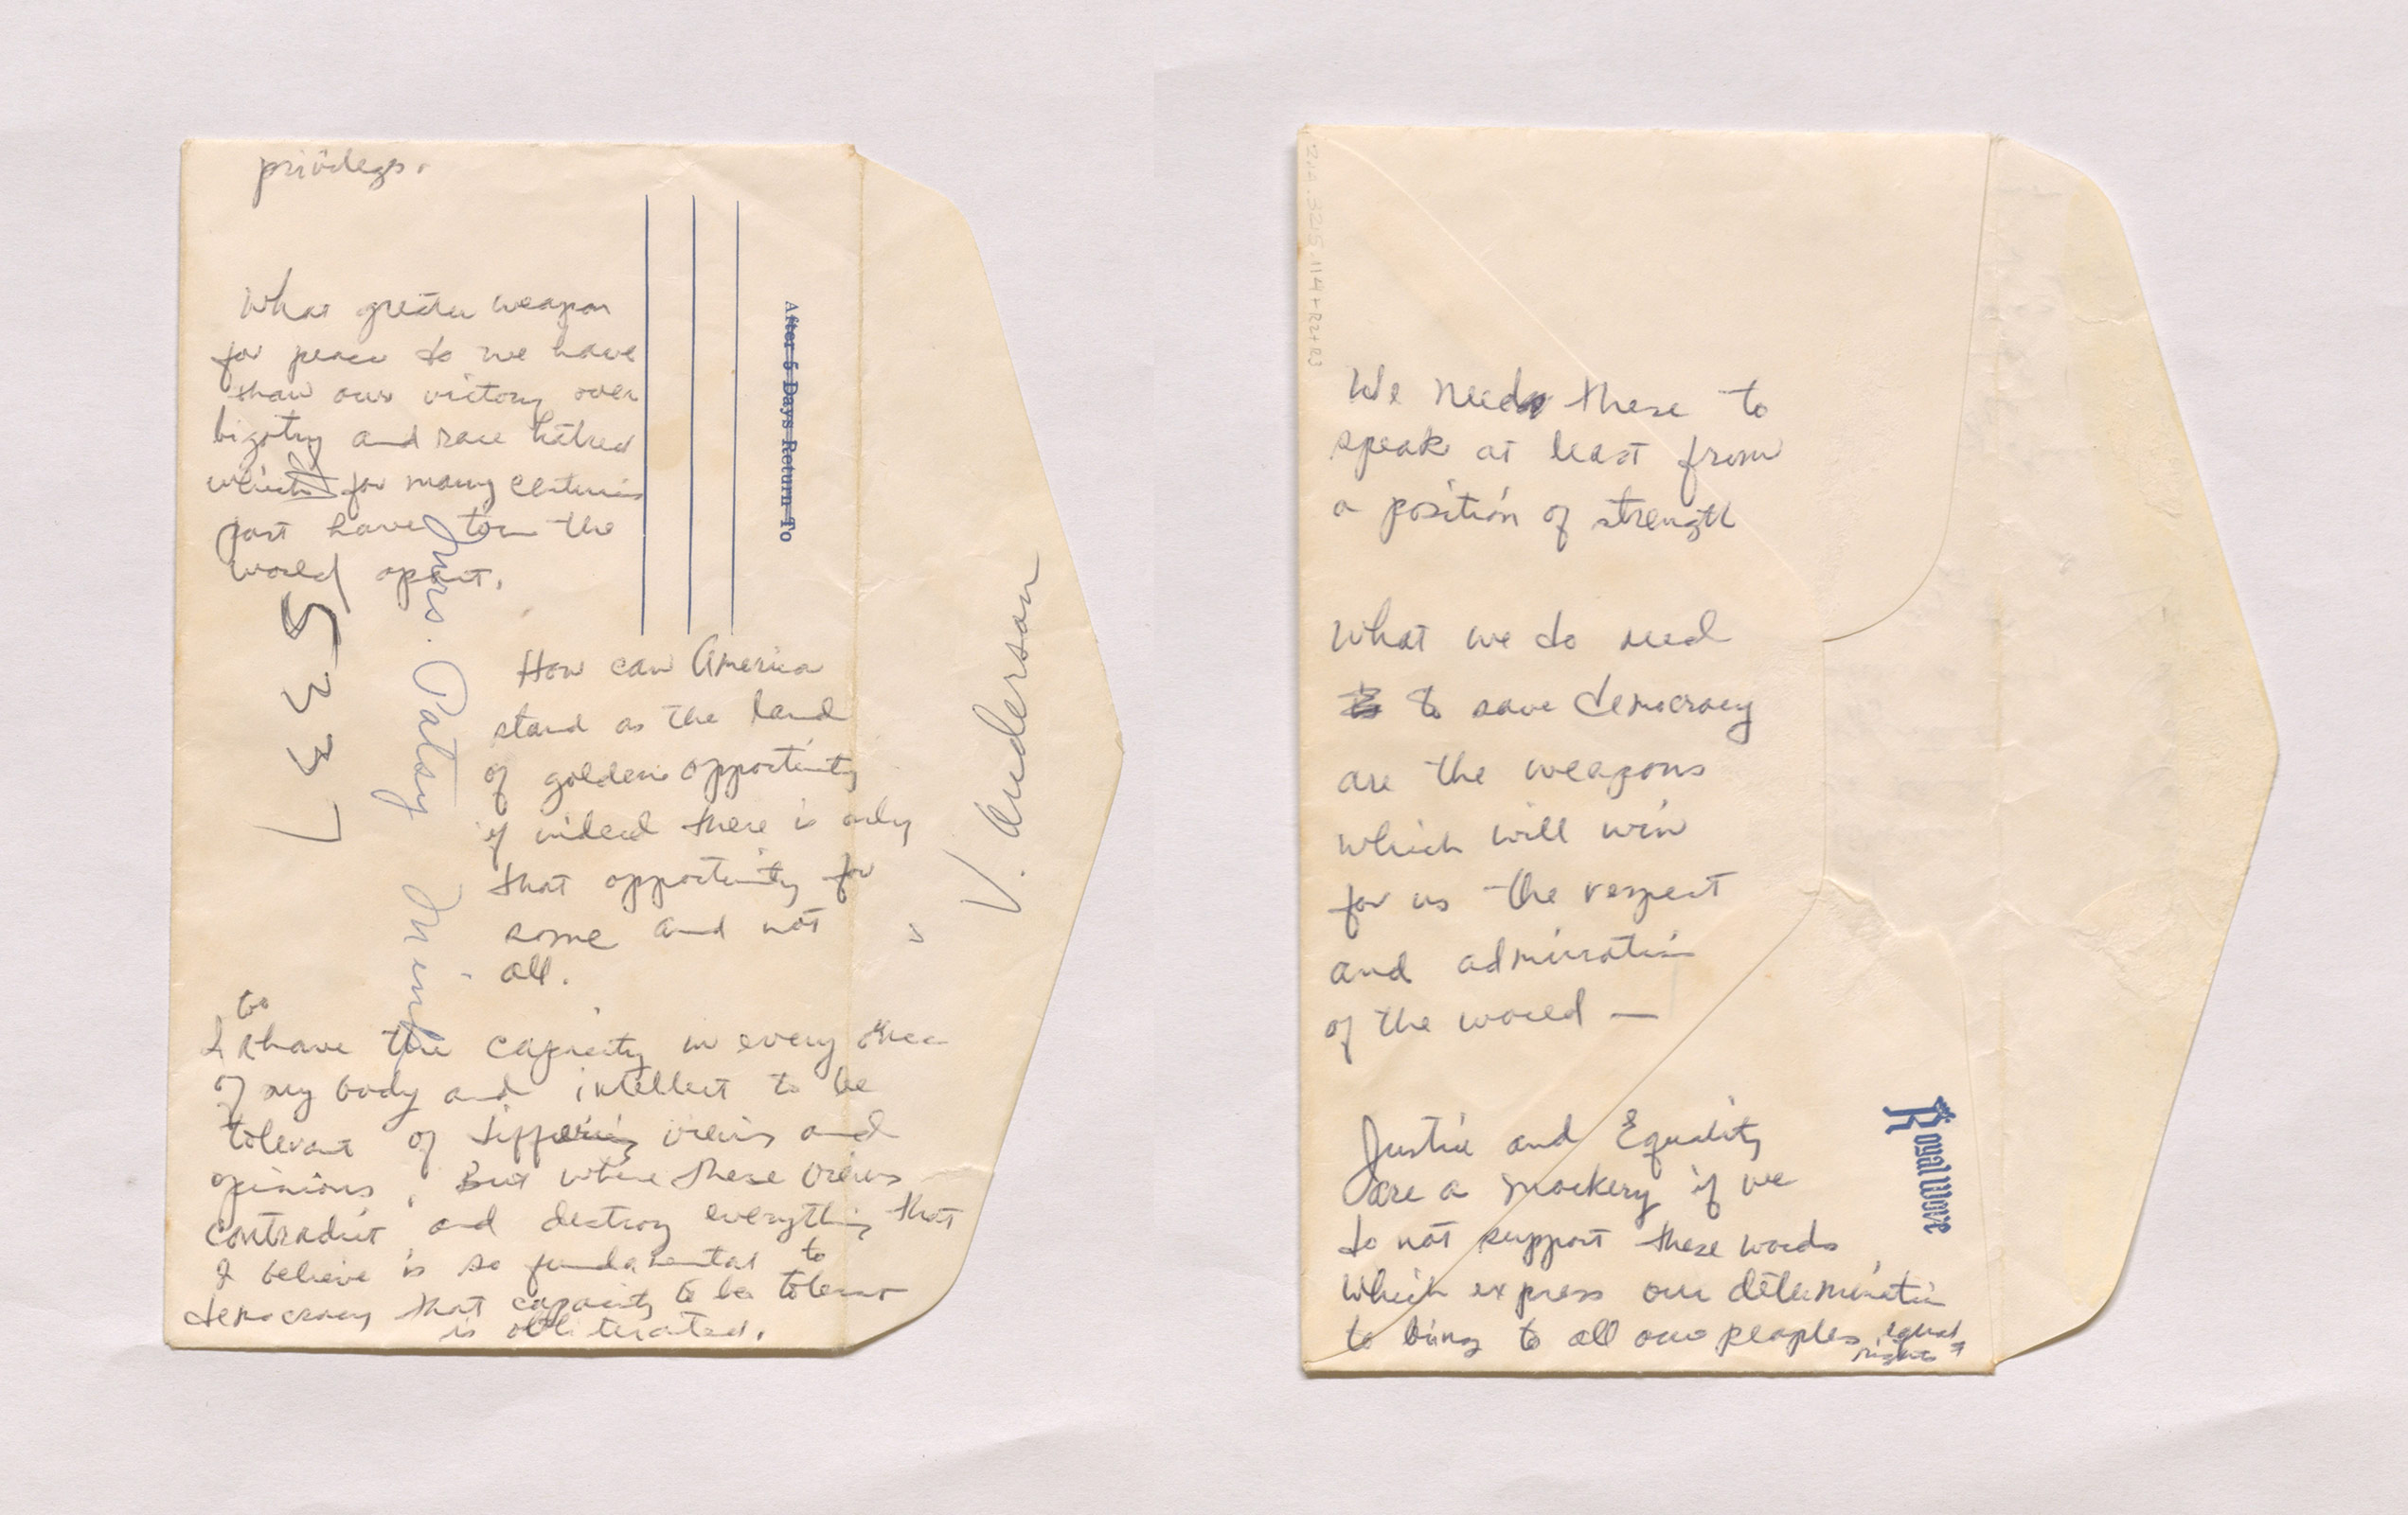 privileges.
What greater weapon
for peace do we have
than our victory over
bigotry and race hatred
which for many centuries
past have torn the
world apart.
After 5 Days Return To
Mrs. Patsy Mink
V. Anderson
How can America
stand as the land
of golden opportunity
if indeed there is only
that opportunity for
some and not
all.
to
I have the capacity in every
of my body and intellect to be
tolerant of differing views and
opinions. But where these views
contradict and destroy everything that
I believe is so fundamental to
democracy that capacity to be tolerant
is obliterated.
We need these to
speak at least from
a position of strength
What we do need
to save democracy
are the weapons
which will win
for us the respect
and admiration
of the world —
Justice and Equality
are a mockery if we
do not support these words
which express our determination
to bring to all our peoples equal
rights &
Royal Wove